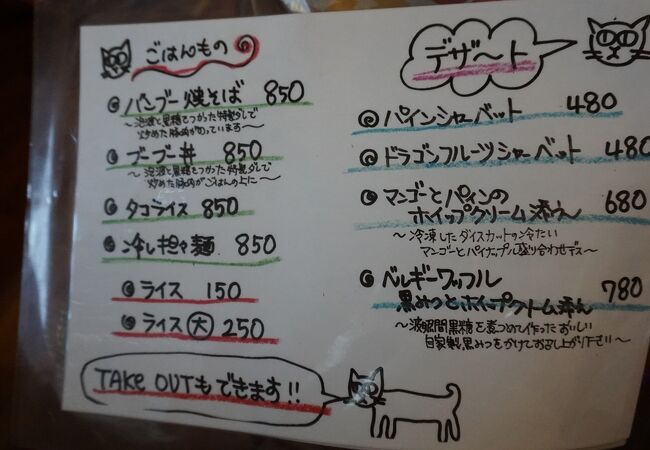 ごはんもの
バンブー焼そば 850
～泡盛と黒糖をつかった特製ダレで
炒めた豚肉が のっています～
ブーブー丼 850
～泡盛と黒糖をつかった特製ダレで
炒めた豚肉がごはんの上に～
タコライス 850
冷し担々麺 850
ライス 150
ライス 大 250
TAKE OUTもできます!!
デザート
パインシャーベット 480
ドラゴンフルーツシャーベット 480
マンゴーとパインの
ホイップクリーム添え 680
～冷凍したダイスカットの冷たい
マンゴーとパイナップル盛り合わせデス～
ベルギーワッフル
黒みつとホイップクリーム添え 780
～波照間黒糖を煮つめて作ったおいしい
自家製黒みつをかけてお召し上がり下さい～